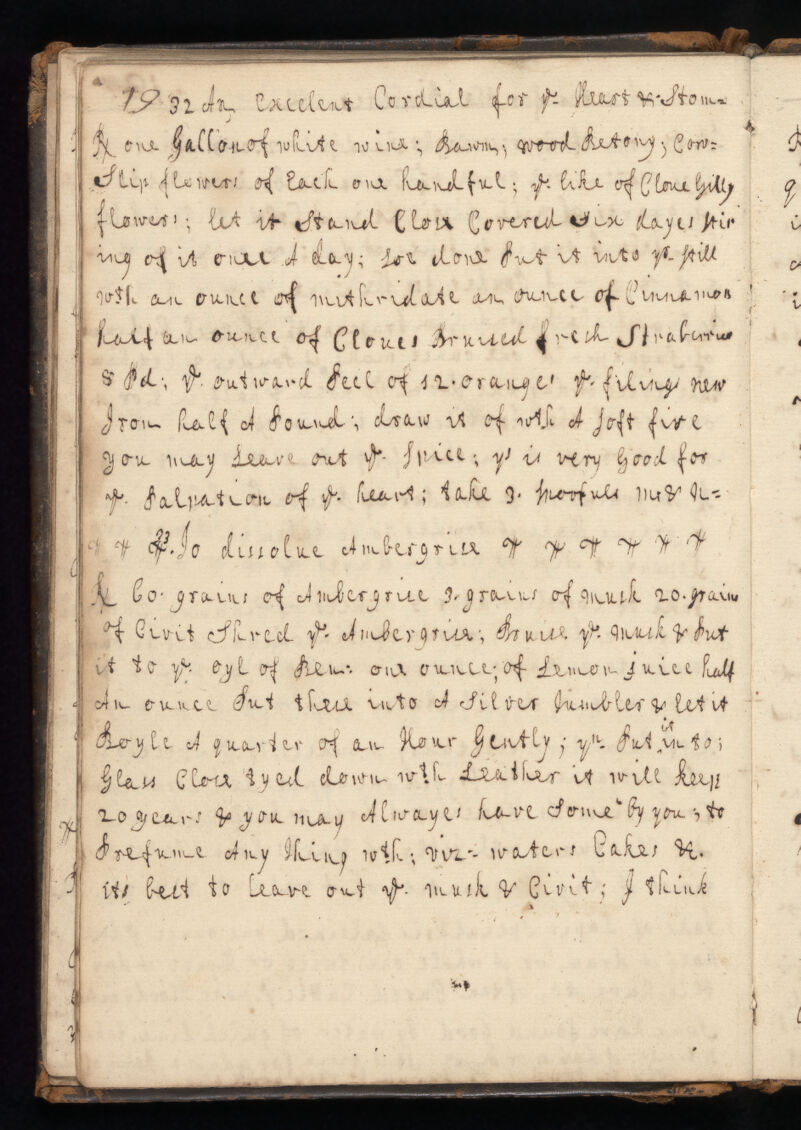 19 32 An Excelent Cordial for ye Heart & Stom=
℞ one Gallon of white wine; Bawm; wood Betony; Cow=
Slip flowers of Each one handful; ye like of Clove Gilly
flowers; let it Stand Close Covered Six dayes stir
ing of it once A day; soe done Put it into ye still
wth an ounce of mithridate an ounce of Cinnamon
half an ounce of Cloves Bruised fresh Straberries
8 Pd; ye outward Peel of 12 oranges ye filings new
Iron half A Pound; draw it of wth A soft fire
you may Leave out ye spice; ys is very Good for
ye Palpation of ye heart; take 3 spoofuls m& N=
33. To dissolve Ambergrise
℞ 60 grains of Ambergrise 3 grains of musk 20 grains
of Civit Shred ye Ambergrise; Bruise ye musk & Put
it to ye oyl of Ben: one ounce; of Lemon juice half
An ounce Put these into A Silver Tumbler & let it
Boyle A quarter of an Hour Gently; yn Put it in to;
Glass Close tyed down wth Leather it will keep
20 years & you may Alwayes have Some by you, to
Prefume Any thing wth; viz= waters Cakes &c.
its best to leave out ye musk & Civit; I think